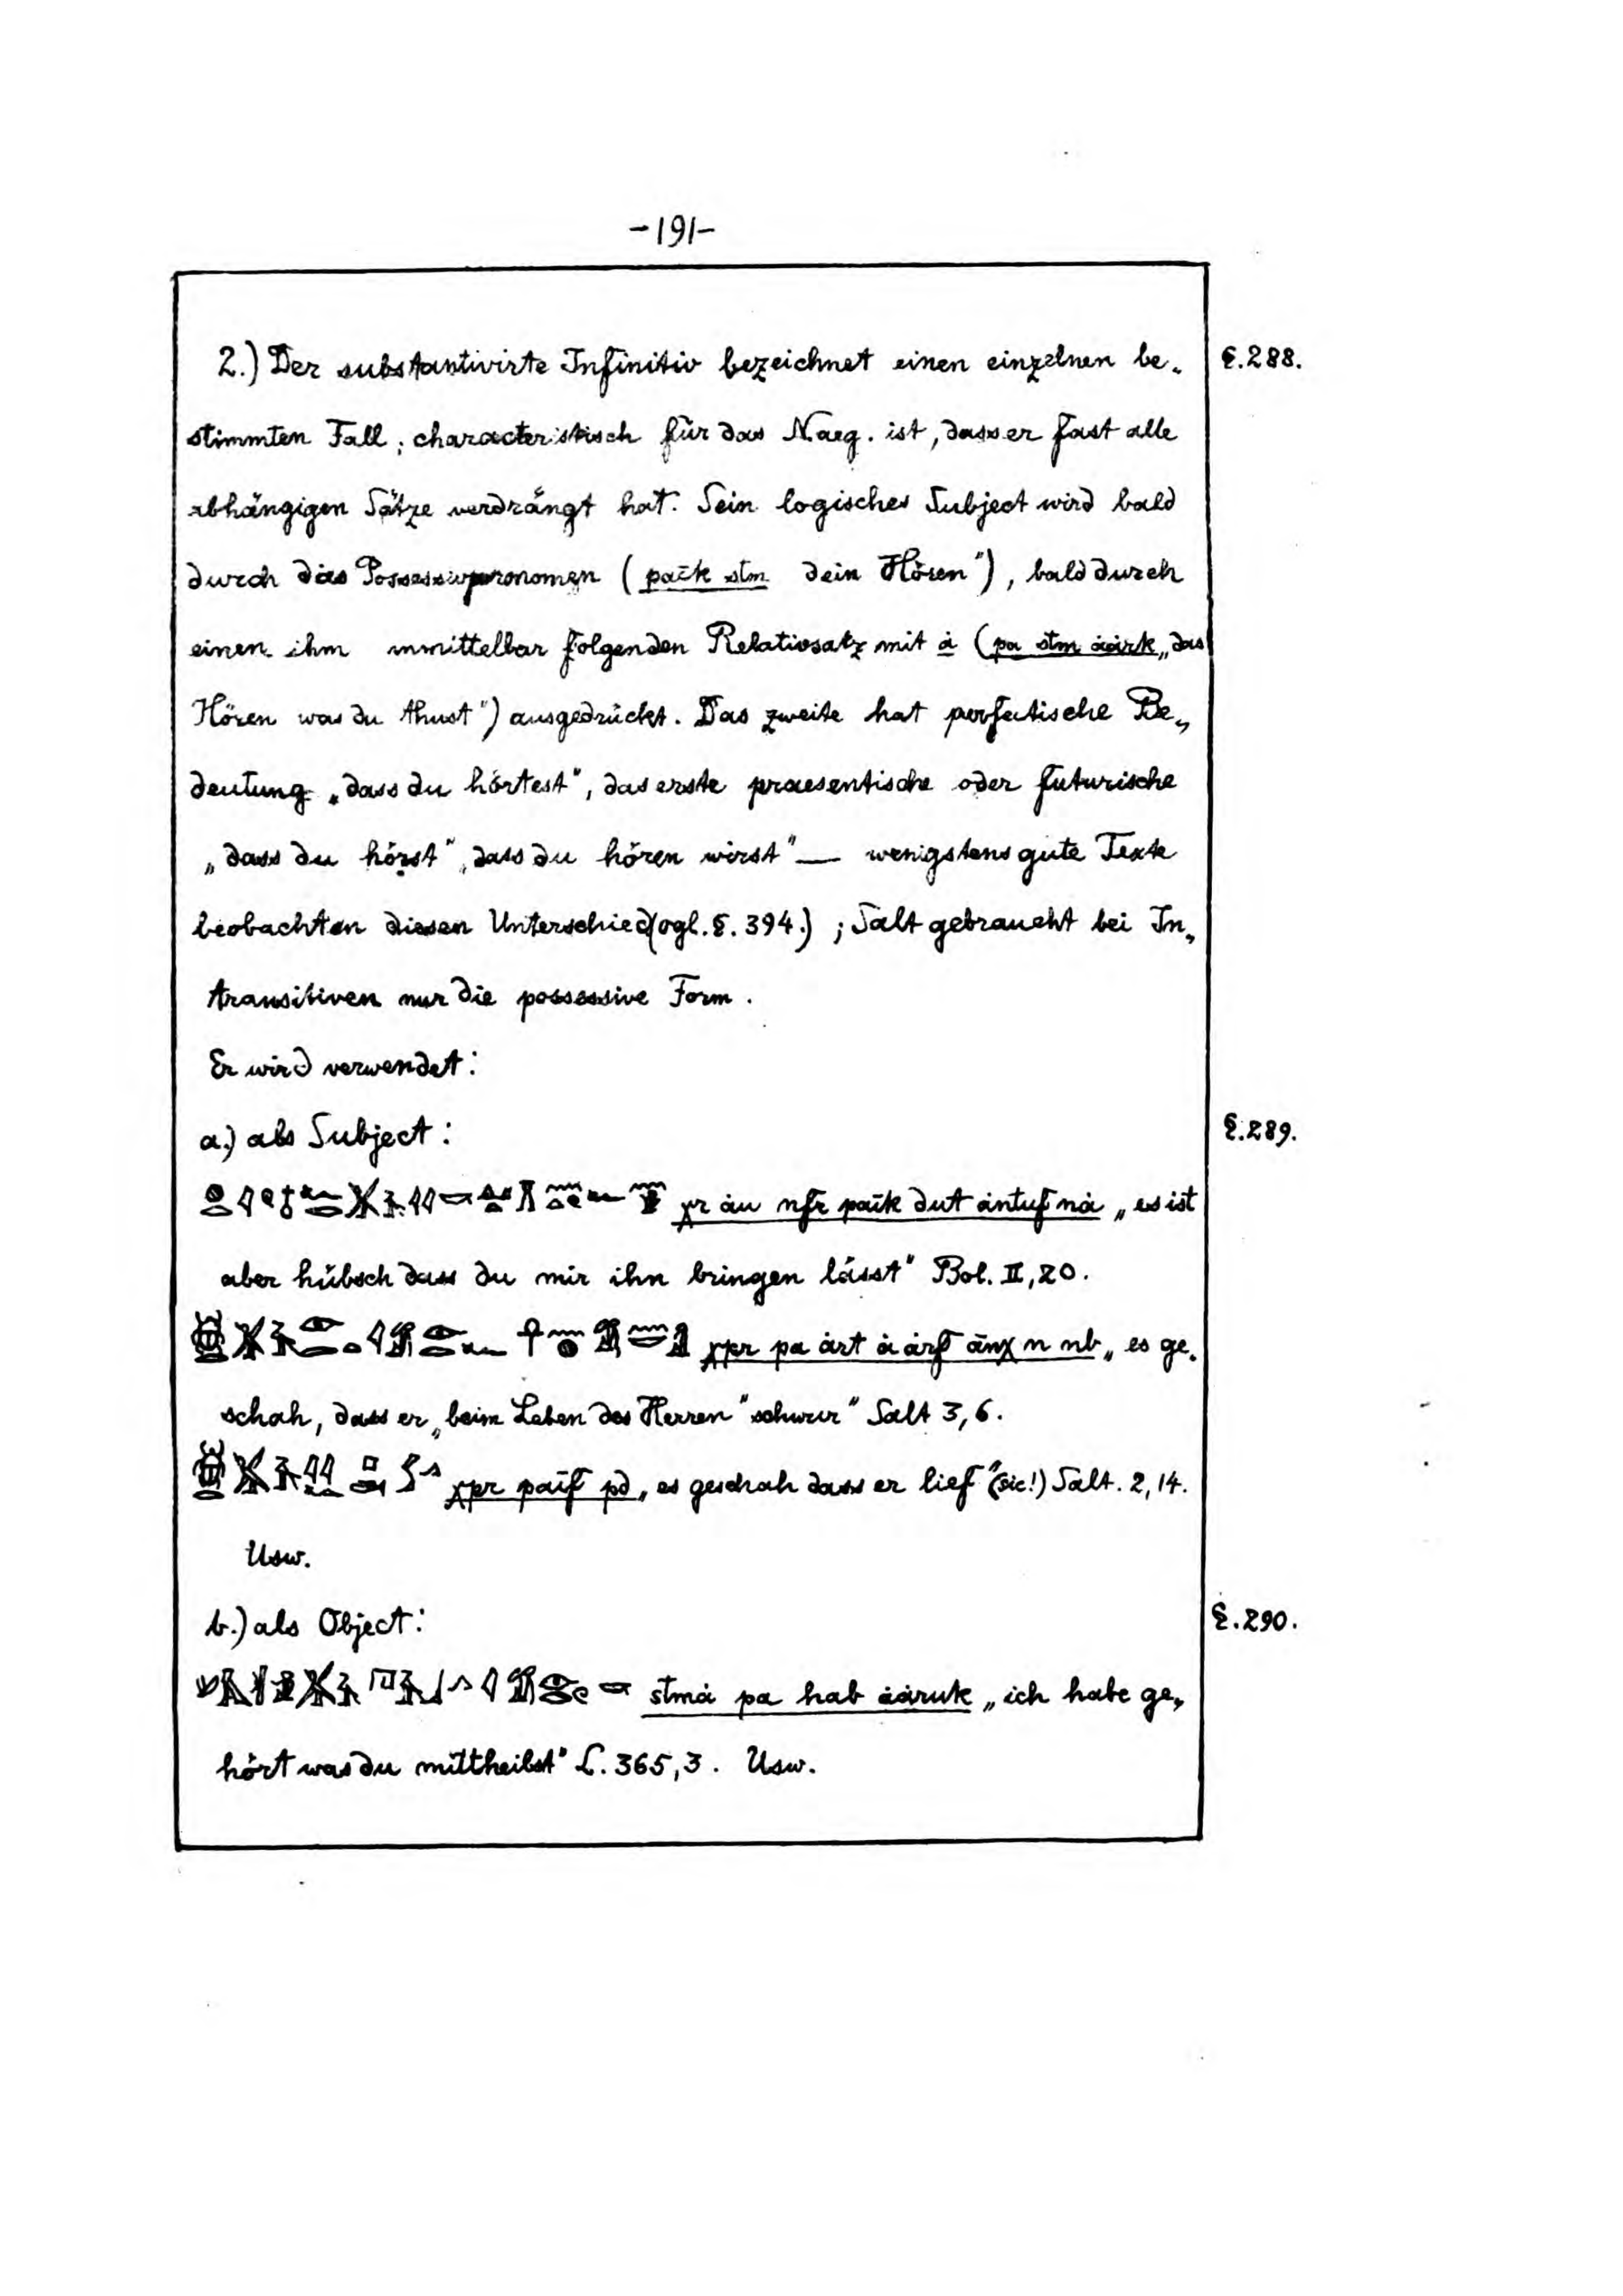 -191-
2.) Der substantivirte Infinitiv bezeichnet einen einzelnen be- §.288.
stimmten Fall; characteristisch für das Naeg. ist, dass er fast alle
abhängigen Sätze verdrängt hat. Sein logisches Subject wird bald
durch das Possessivpronomen (paīk stm dein Hören"), bald durch
einen ihm unmittelbar folgenden Relativsatz mit ȧ (pa stm ȧȧrk „das
Hören was du thust") ausgedrückt. Das zweite hat perfectische Be„
deutung „dass du hörtest", das erste praesentische oder futurische
„dass du hörst" „dass du hören wirst" — wenigstens gute Texte
beobachten diesen Unterschied (vgl. §. 394.) ; Salt gebraucht bei In„
transitiven nur die possessive Form.
Er wird verwendet:
a.) als Subject: §.289.
χr ȧu nfr paīk dut ȧntuf nȧ „es ist
aber hübsch dass du mir ihn bringen lässt" Bol. II, 20.
χpr pa ȧrt ȧ ȧrf ānχ n nb „ es ge-
schah, dass er „beim Leben des Herren" schwur" Salt 3,6.
χpr paīf pd „ es geschah dass er lief" (sic!) Salt. 2,14.
Usw.
b.) als Object: §.290.
stmȧ pa hab ȧȧruk „ich habe ge„
hört was du mittheilst" L. 365,3. Usw.